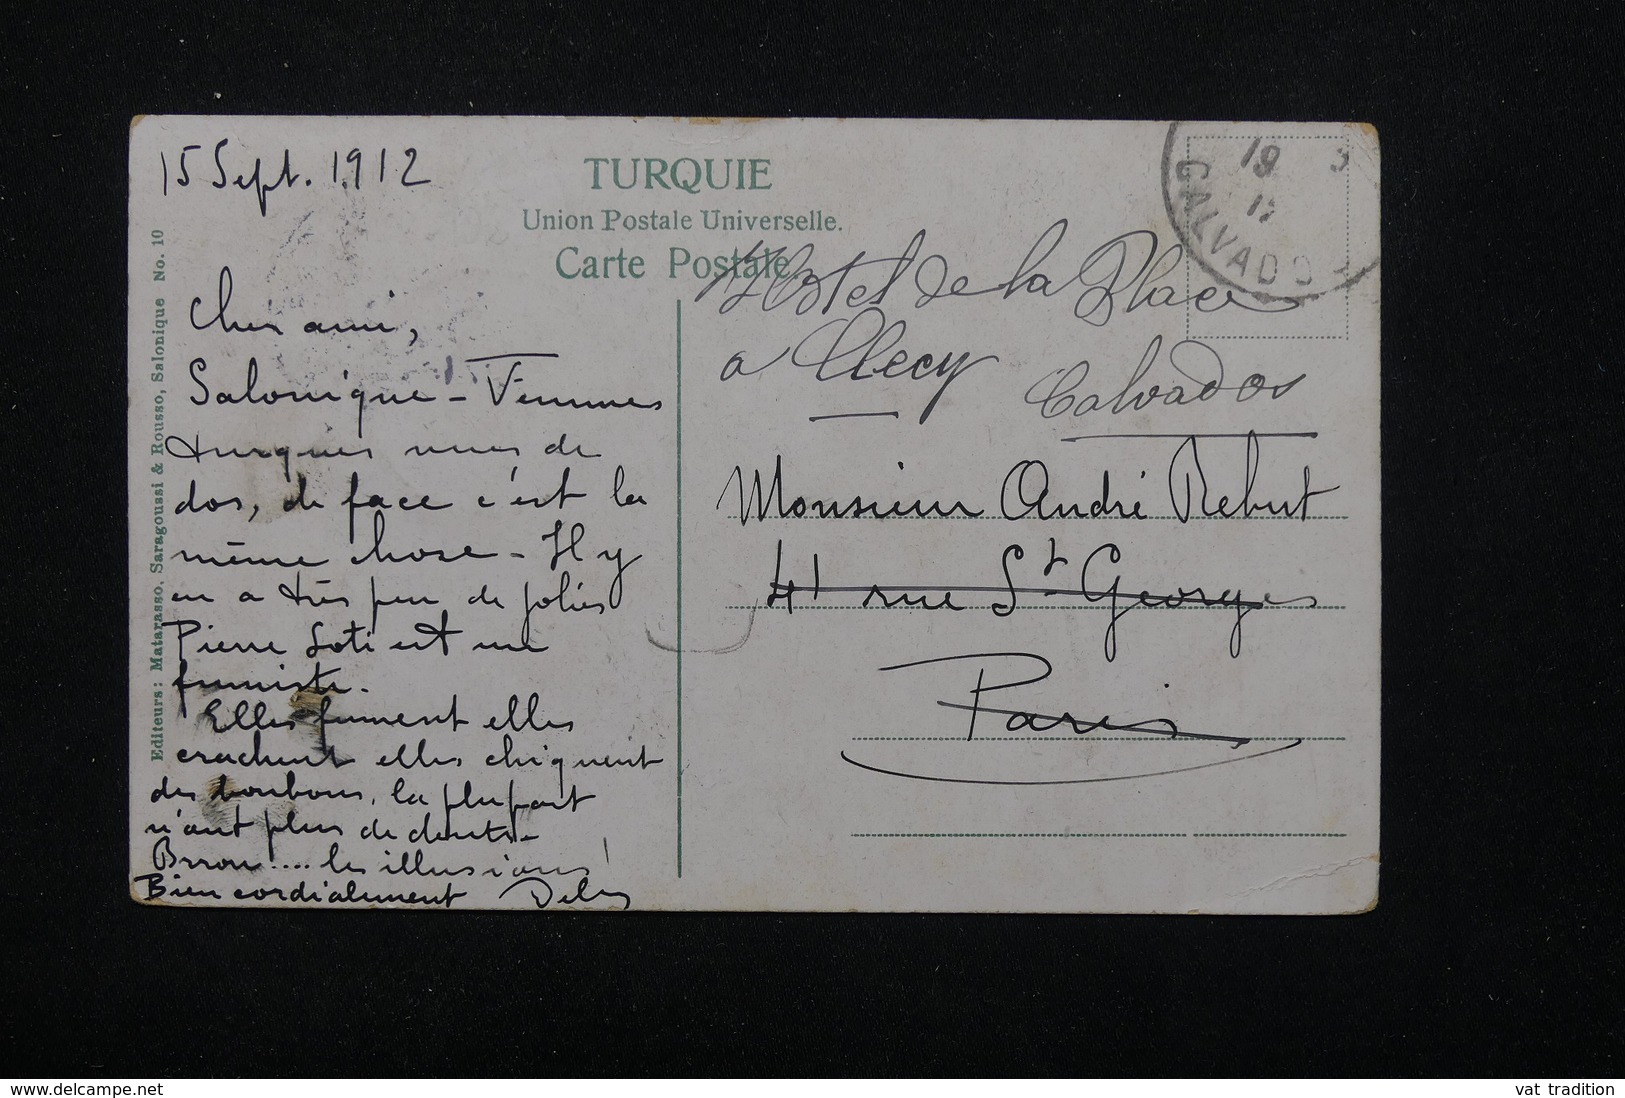 15 Sept. 1912
TURQUIE
Union Postale Universelle.
Carte Postale.
Editeurs: Matarasso, Saragoussi & Rousso, Salonique No. 10
Cher ami,
Salonique - Femmes
turques vues de
dos, de face c'est la
même chose - Il y
en a très peu de jolies
Pierre Loti est un
fumiste.
Elles fument elles
crachent elles chiquent
des bonbons, la plupart
n'ont plus de dents -
Brrou.... les illusions!
Bien cordialement
19 3
CALVADOS
Hotel de la Place
a Clecy
Calvados
Monsieur André Rebut
41 rue St Georges
Paris
www.delcampe.net
vat tradition